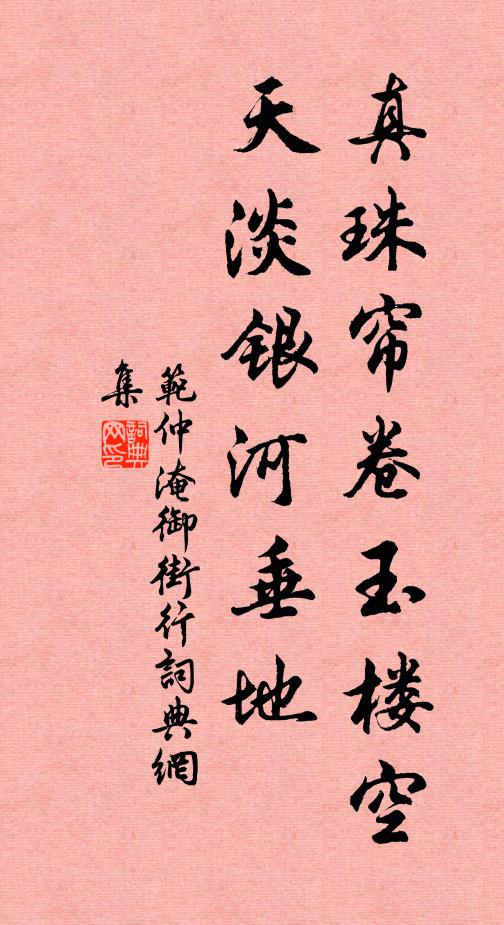 真珠帘卷玉楼空
天淡银河垂地
範仲淹御街行詞典網
集
詞典網印